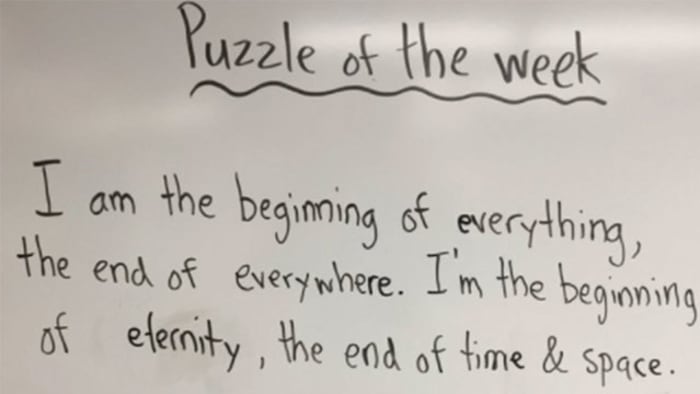 Puzzle of the week
I am the beginning of everything,
the end of everywhere. I'm the beginning
of eternity, the end of time & space.